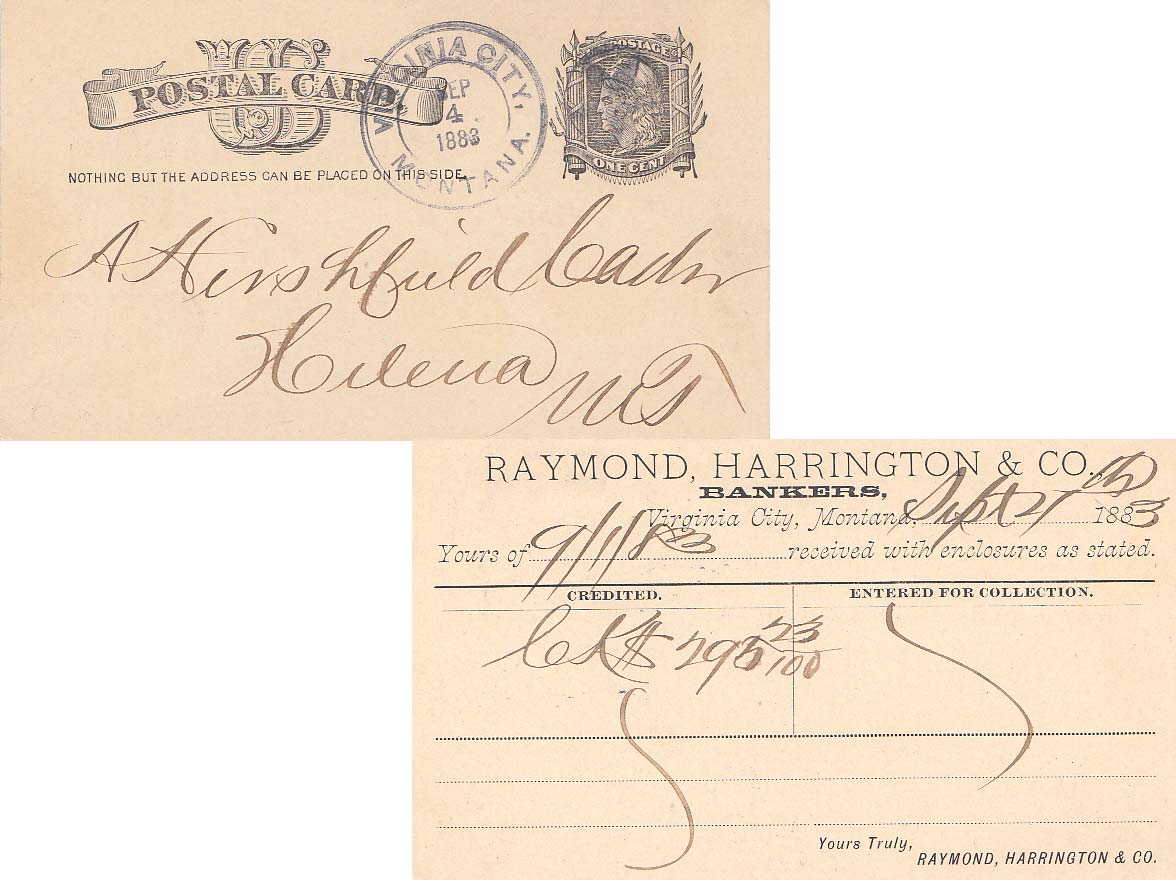 US
POSTAL CARD.
NOTHING BUT THE ADDRESS CAN BE PLACED ON THIS SIDE.
VIRGINIA CITY,
SEP
4
1883
MONTANA.
U.S. POSTAGE
ONE CENT
A Hershfield Cashr
Helena MT
RAYMOND, HARRINGTON & CO.
BANKERS,
Virginia City, Montana, Sept 1883
Yours of 9/1/83 received with enclosures as stated.
CREDITED.
ENTERED FOR COLLECTION.
CK $ 295 23/100
Yours Truly,
RAYMOND, HARRINGTON & CO.